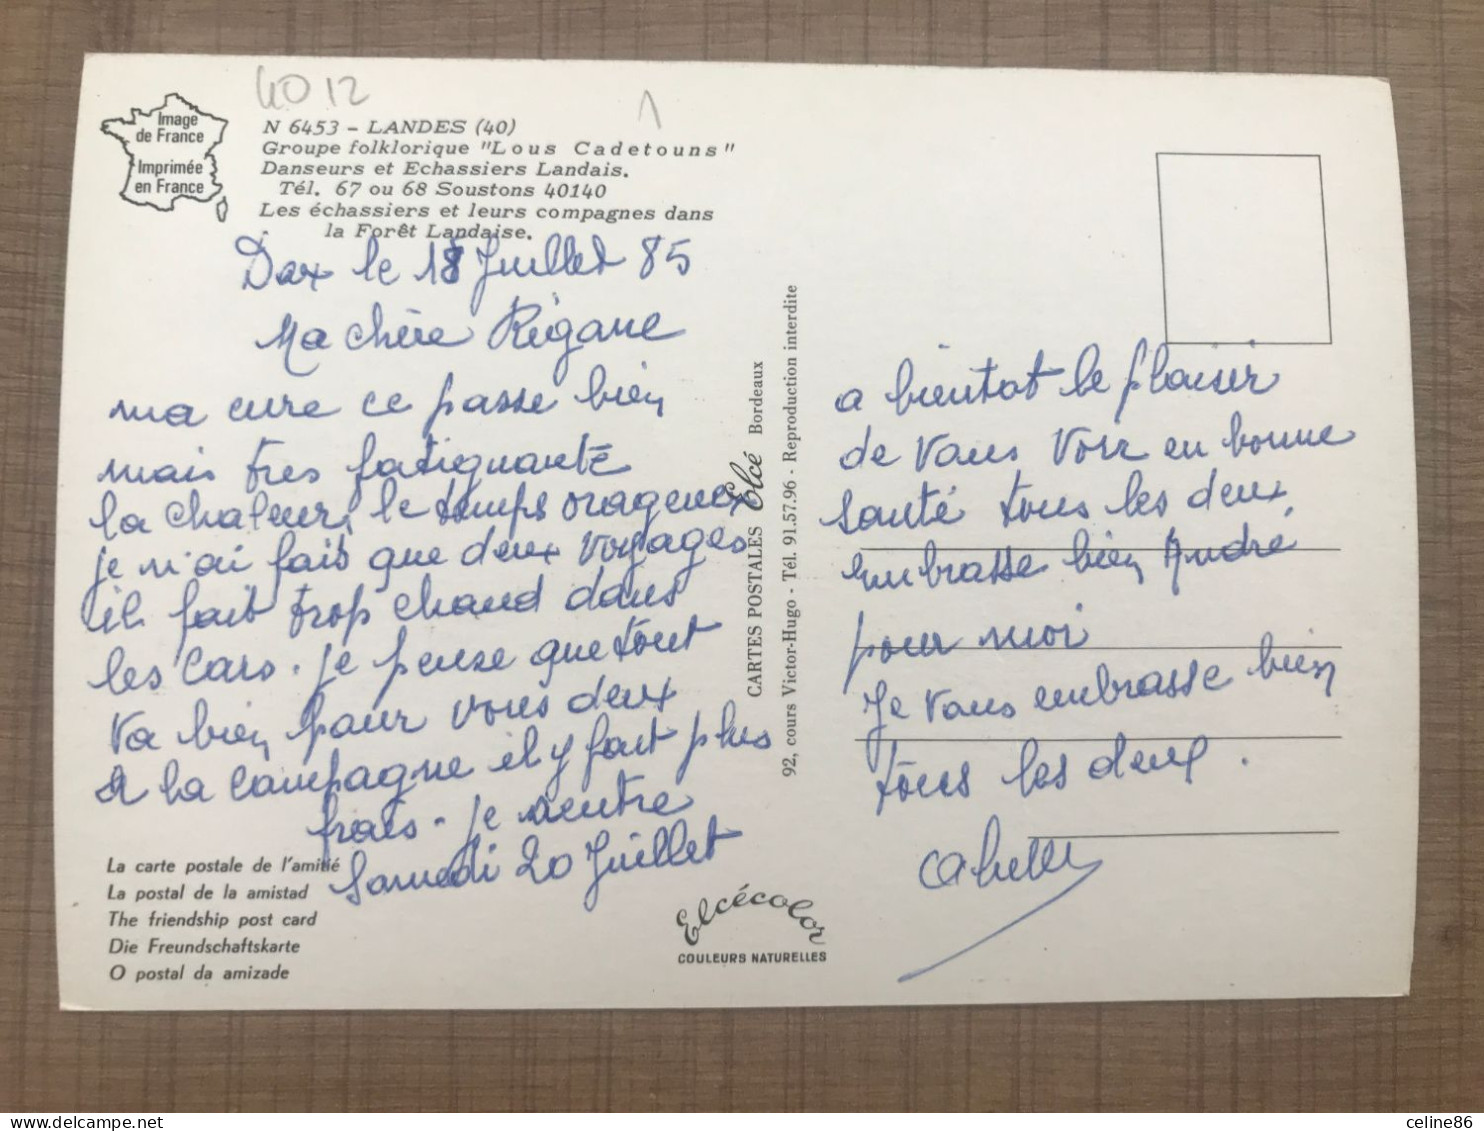 40 12
1
Image
de France
Imprimée
en France
N 6453 - LANDES (40)
Groupe folklorique "Lous Cadetouns"
Danseurs et Echassiers Landais.
Tél. 67 ou 68 Soustons 40140
Les échassiers et leurs compagnes dans
la Forêt Landaise.
Dax le 18 Juillet 85
Ma chère Régane
ma cure ce passe bien
mais tres fatiguante
la chaleur, le temps orageux
je n'ai fais que deux voyages
il fait trop chaud dans
les cars. je pense que tout
va bien pour vous deux
a la campagne il y fait plus
frais. je rentre
Samedi 20 Juillet
La carte postale de l'amitié
La postal de la amistad
The friendship post card
Die Freundschaftskarte
O postal da amizade
CARTES POSTALES Elcé Bordeaux
92, cours Victor-Hugo - Tél. 91.57.96 - Reproduction interdite
Elcécolor
COULEURS NATURELLES
a bientot le plaisir
de vous voir en bonne
santé tous les deux,
embrasse bien André
pour moi
Je vous embrasse bien
tous les deux.
celine86